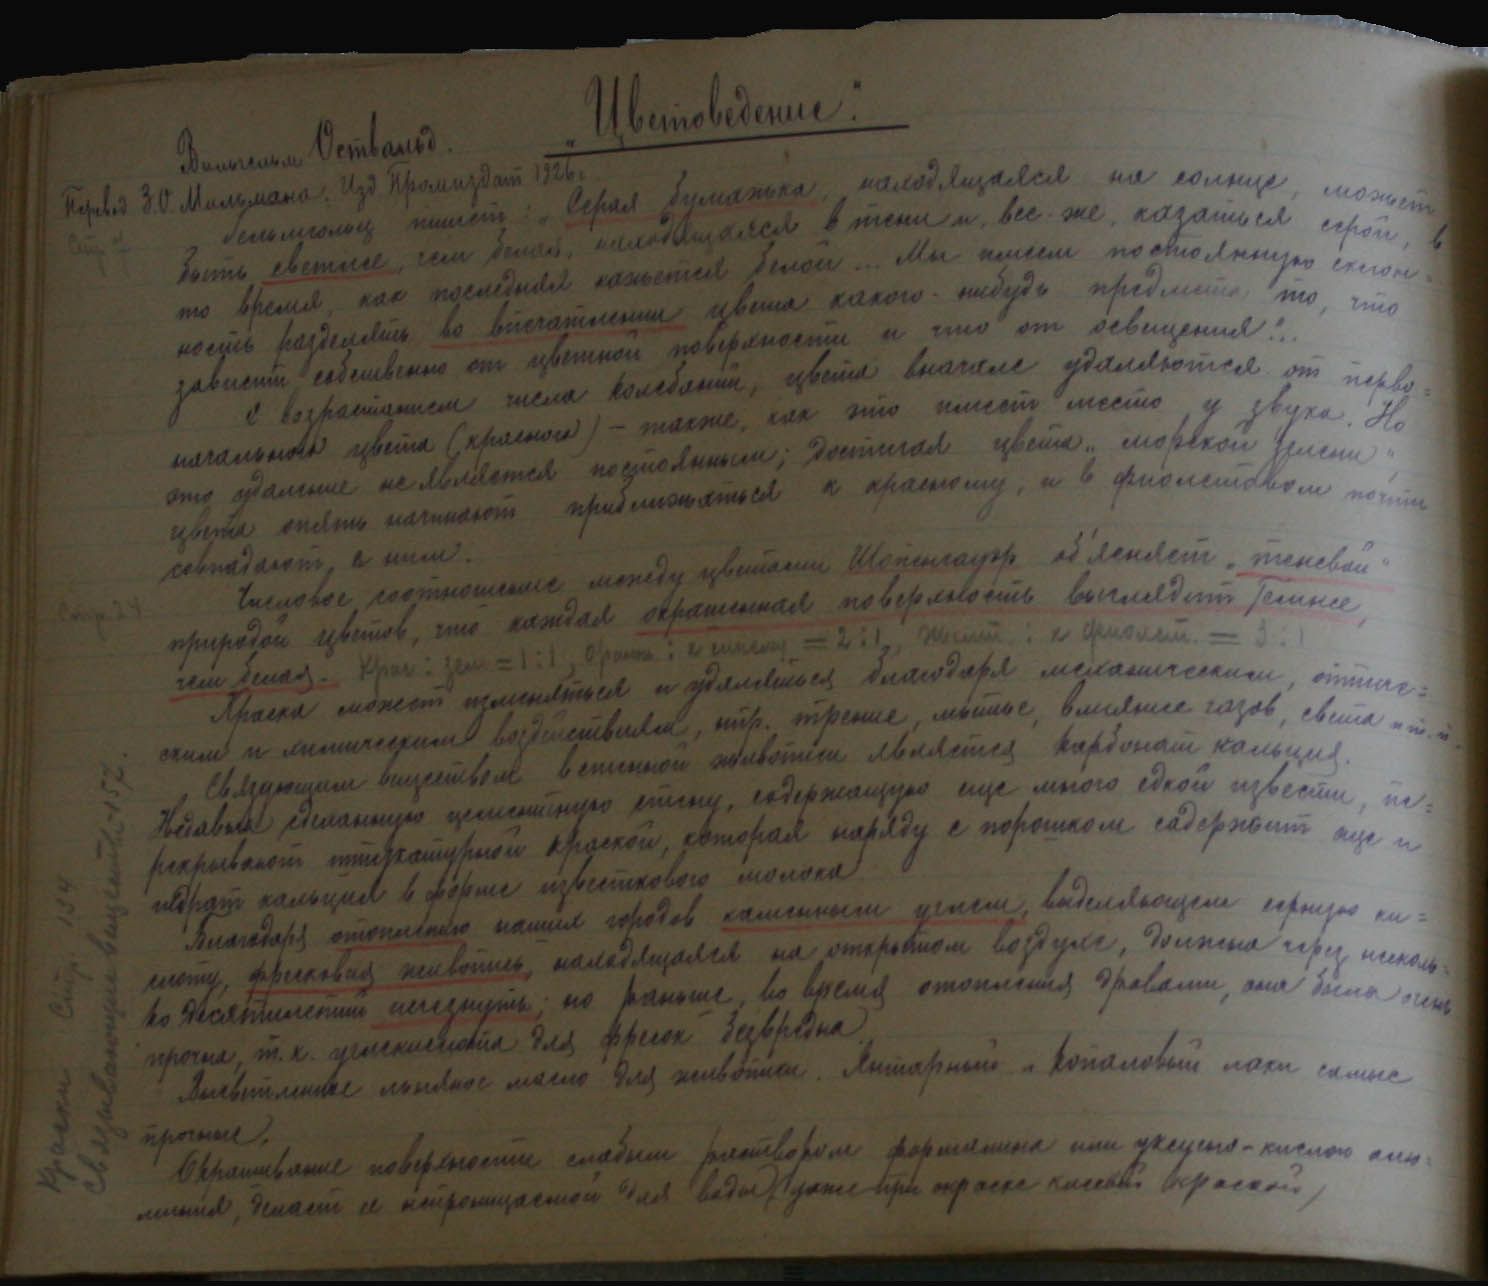 „Цветоведение".
Вильгельм Оствальд.
Перевод З.О. Мильмана. Изд Промиздат 1926г.
Стр
Гельмгольц пишет: „Серая бумажка, находящаяся на солнце, может
быть светлее, чем белая, находящаяся в тени и, все-же, казаться серой, в
то время, как последняя кажется белой... Мы имеем постоянную склон=
ность разделять во впечатлении цвета какого-нибудь предмета то, что
зависит собственно от цветной поверхности и что от освещения"...
С возрастанием числа колебаний, цвета вначале удаляются от перво=
начального цвета (красного) – также, как это имеет место у звука. Но
это удаление не является постоянным; достигая цвета „морской зелени",
цвета опять начинают приближаться к красному, и в фиолетовом почти
совпадают с ним.
Стр. 24
Числовое соотношение между цветами Шопенгауэр об'ясняет „теневой"
природой цветов, что каждая окрашенная поверхность выглядит темнее,
чем белая. Крас: зел = 1:1, оранж: к синему = 2:1, желт: к фиолет. = 3:1
Краска может изменяться и удаляться благодаря механическим, оптиче=
ским и химическим воздействиям, нпр. трение, мытье, влияние газов, света и т.п.
Связующим веществом в стенной живописи является карбонат кальция.
Недавно сделанную цементную стену, содержащую еще много едкой извести, пе=
рекрывают штукатурной краской, которая наряду с порошком садержит еще и
гидрат кальция в форме известкового молока
Благодаря отоплению наших городов каменным углем, выделяющем серную ки=
слоту, фресковая живопись, находящаяся на открытом воздухе, должна через несколь=
ко десятилетий исчезнуть; но раньше, во время отопления дровами, она была очень
прочна, т.к. углекислота для фресок безвредна.
Высветленное льняное масло для живописи. Янтарный и Копаловый лаки самые
прочные.
Окрашивание поверхности слабым раствором формалина или уксусно-кислого алю=
миния, делает ее непроницаемой для воды (даже при окраске клеевой краской)
Краски Стр. 134
Связывающие вещества – 157.